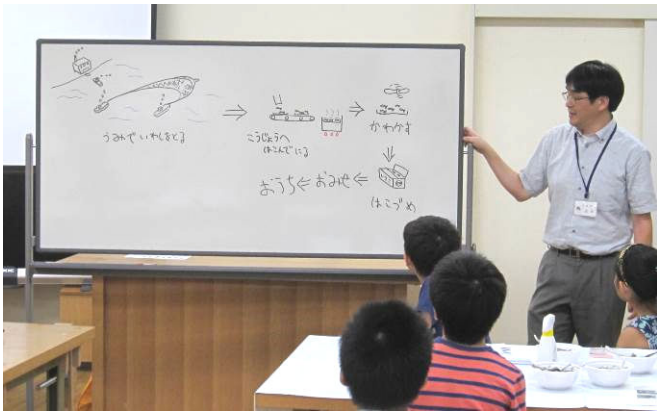 うみでいわしをとる
こうじょうへ
はこんでにる
かわかす
はこづめ
おみせ
おうち